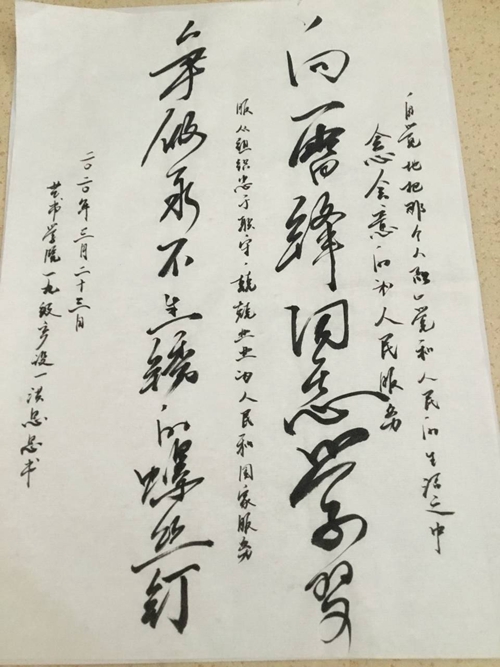 自觉地把那个人融入党和人民的生活之中
全心全意的为人民服务
向雷锋同志学习
服从组织忠于职守兢兢业业为人民和国家服务
争做永不生锈的螺丝钉
二〇二〇年三月二十三日
艺术学院一九级产设一书